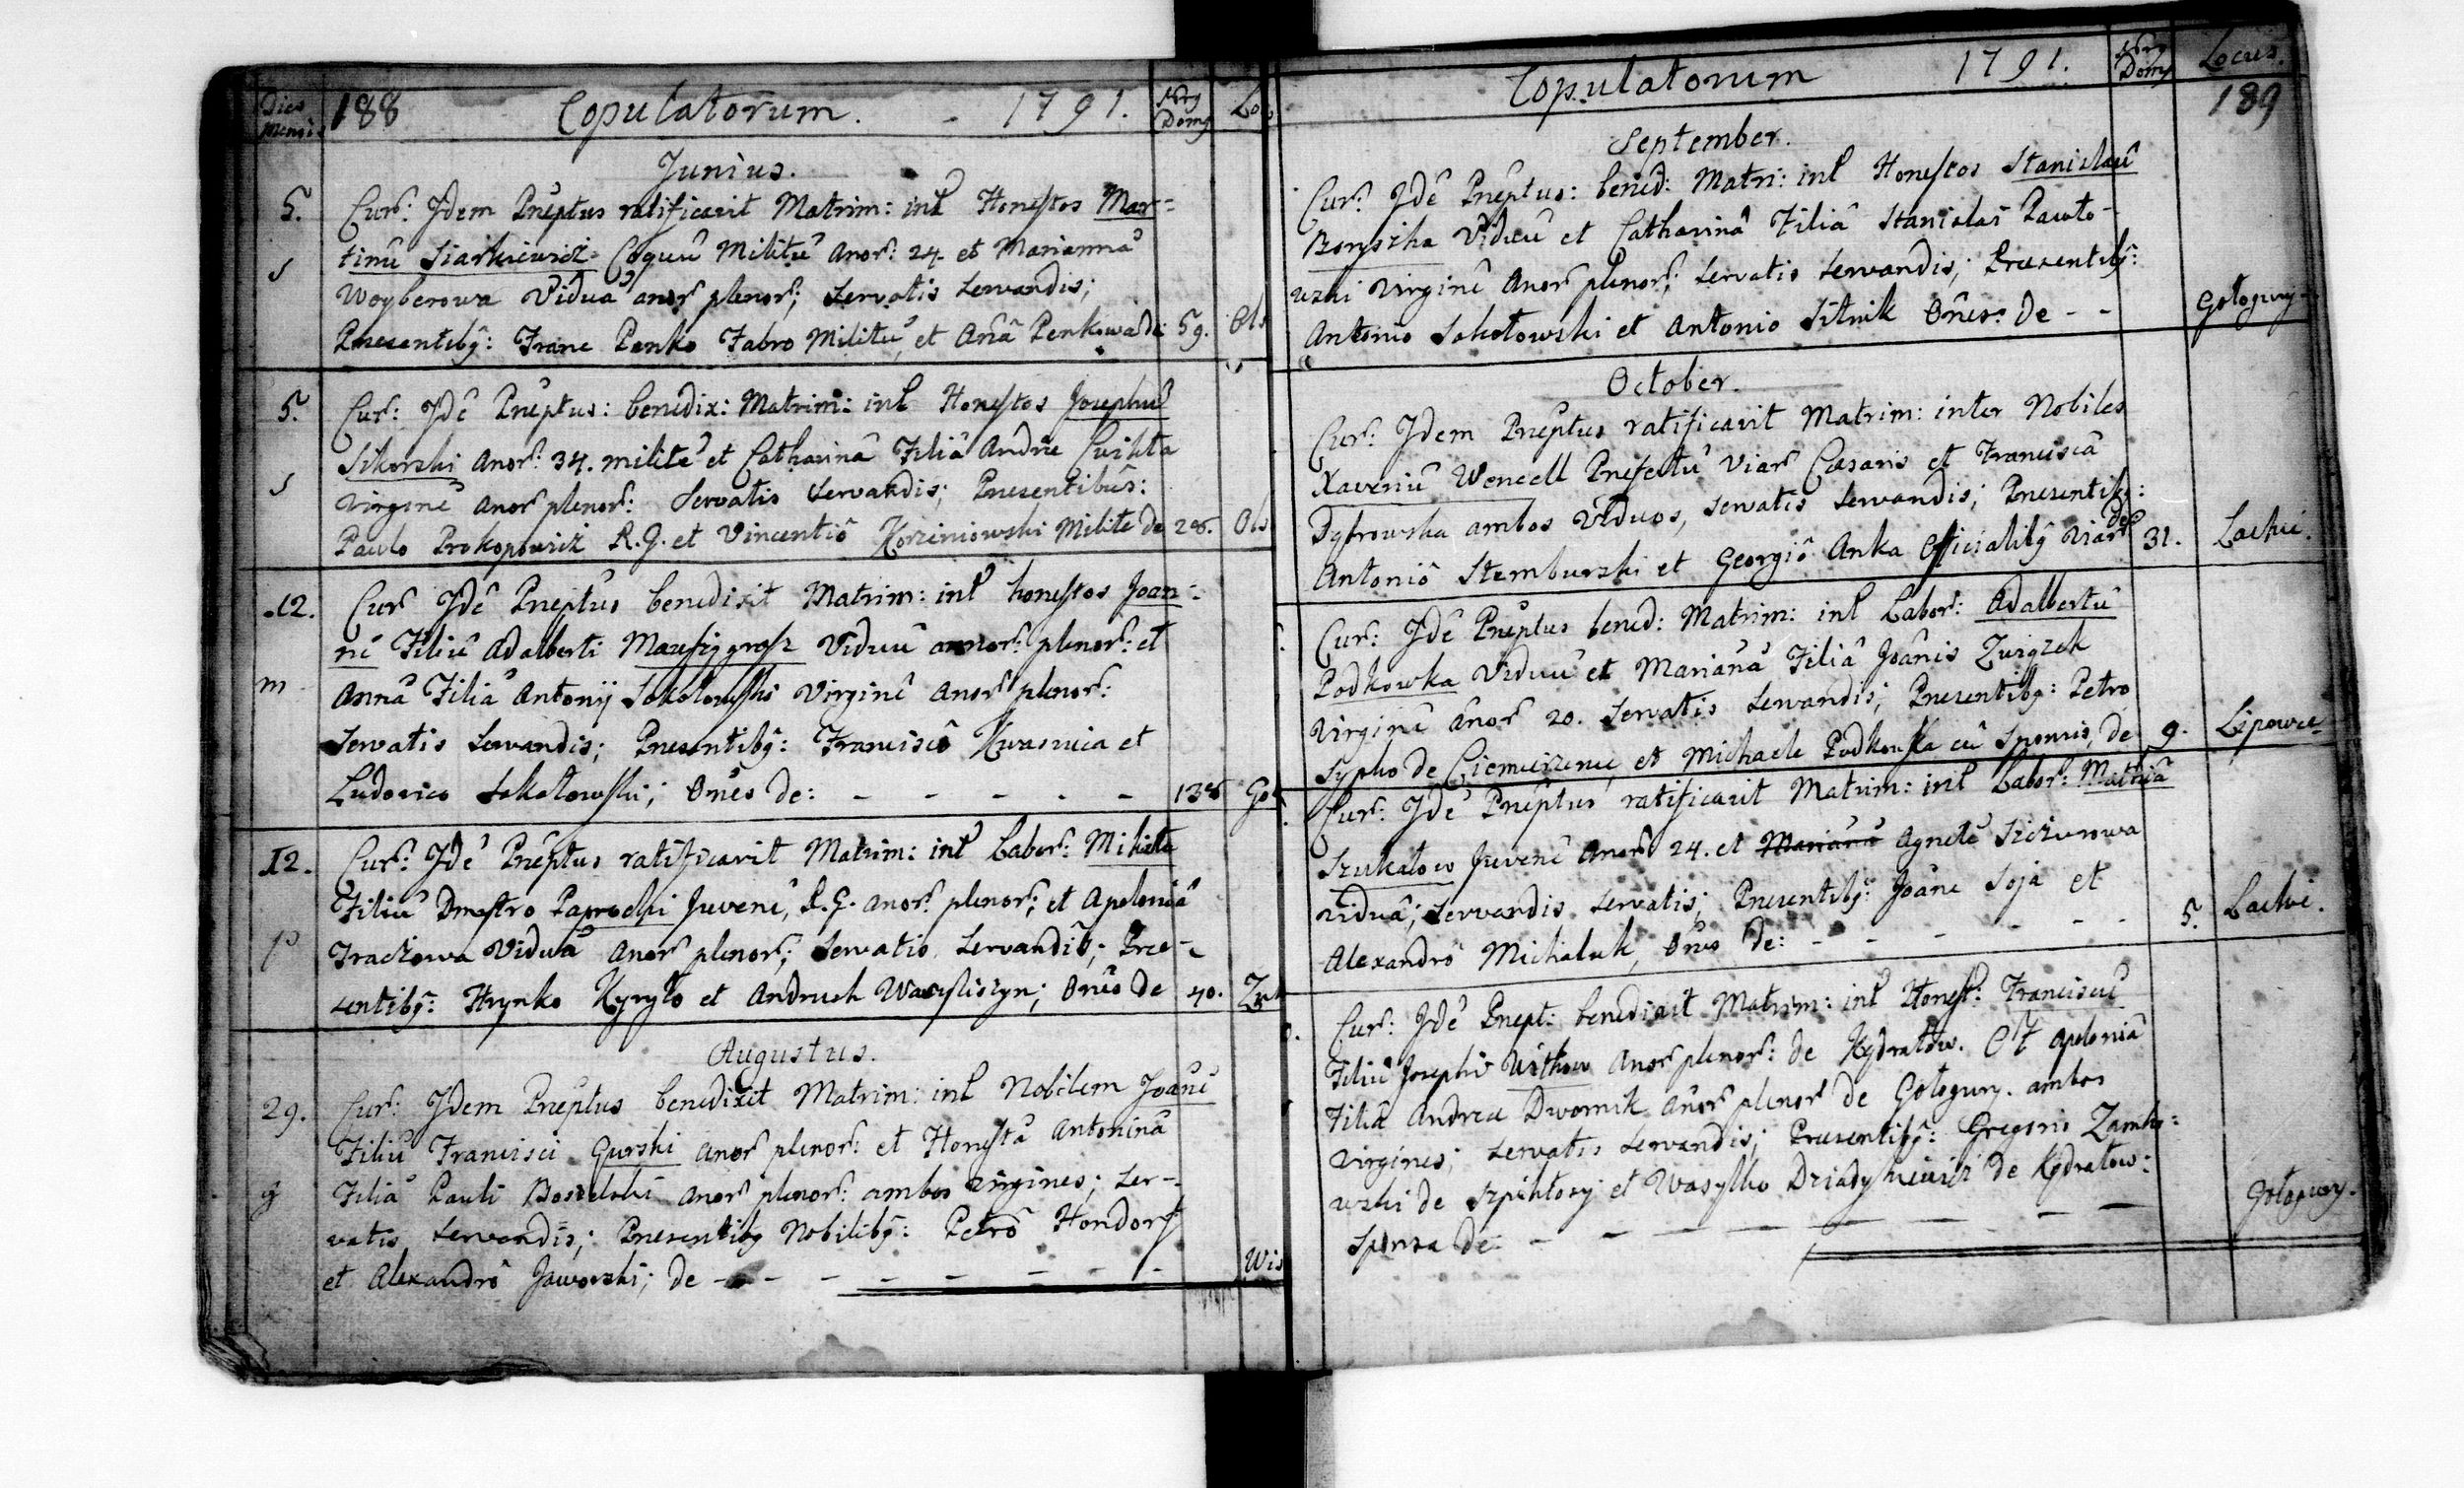 Dies mensis 188 Copulatorum. 1791. Nrg Domg Loc
Junius.
5. Cur: Jdem Prêptus ratificavit Matrim: int Honestos Mar-
s tinû Siarkiewicz Coquû Militû Anor: 24. et Mariannâ
Woyberowa Viduâ anor plenor; servatis servandis;
Praesentibg: Franc Penko Fabro Militû, et Anâ Penkowa de 59. Ols
5. Cur: Jdê Prêptus: benedix: Matrim: int Honestos Josephû
Sikorski Anor: 34. militê et Catharinâ Filiâ Andreae Cwikta
s Virginê Anor plenor: Servatis Servandis; Praesentibûs:
Pawlo Prokopowicz R.G. et Vincentiô Korzeniowski Milite de 28. Ols
12. Cur Jdê Prêptus benedixit Matrim: int honestos Joan-
nê Filiû Adalberti Viduû annor: plenor: et
m Annâ Filiâ Antonij Sokołowski Virginê Anor plenor:
Servatis Servandis; Praesentibg: Franciscô Kwasnica et
Ludovico Sokołowski; Onês de: - - - - - 138 Goł
12. Cur: Jdê Prêptus ratificavit Matrim: int Labor: Mikita
Filiû Dmytro Paprocki Juvenê, R.G. anor: plenor; et Apoloniâ
p Traczowa Viduâ Anor plenor; Servatis Servandis; Prae-
sentibg: Hrynko Kyryło et Andruch Wasyliszyn; Onês de 40.
Augustus.
29. Cur: Jdem Prêptus benedixit Matrim: int Nobilem Joanê
Filiû Francisci Gurski anor plenor: et Honestâ Antoninâ
g Filiâ Pauli anor plenor: ambos virgines; Ser-
vatis Servandis; Praesentibg Nobilibg: Petrô Hondorf
et Alexandrô Jaworski; de - - - - - - - Wis
Copulatorum 1791. Nrg Domg Locus.
189
September.
Cur: Jdê Prêptus: bened: Matri: int Honestos Stanislaû
Boryszka Viduû et Catharinâ Filiâ Stanislai Pawło-
wski Virginê Anor plenor; servatis servandis; Praesentibg:
Antonio Sokołowski et Antonio Sitnik Onês: de - - Gołogury
October.
Cur: Jdem Prêptus ratificavit Matrim: inter Nobiles
Xaveriû Wencell Prefectû Viar Caesaris et Franciscâ
Dybrowska ambos Viduos, servatis servandis; Praesentibg:
Antoniô Stemburski et Georgiô Anka Officialibg Viar de 31. Lackie.
Cur: Jdê Prêptus bened: Matrim: int Labor: Adalbertû
Podkowka Viduû et Marianâ Filiâ Joânis Zwigzek
Virginê ânor 20. Servatis Servandis; Praesentibg: Petro
Sypko de Ciemierzynce et Michaele Podkowka cû Sponsis, de 9. Lipowce
Cur: Jdê Prêptus ratificavit Matrim: int Labor: Mathiâ
Szukałow Juvenê Anor 24. et Marianâ Agnetê Szczurowa
viduâ; Servandis Servatis; Praesentibg: Joâne Soja et
Alexandrô Michaluk, Onês de: - - - - - - 5. Lackie.
Cur: Jdê Prept: benedixit Matrim: int Honest: Franciscû
Filiû Josephi Witkow Anor plenor: de Kydratow. Et Apoloniâ
Filiâ Andrea Dwornik Anor plenor de Gołogury. ambos
Virgines; servatis servandis; Praesentibg: Gregorio Zamko-
wski de Szpikłosy et Wasylko Dziadykiewicz de Kydratow:
Sponsa de: - - - - - - - Gołogury.